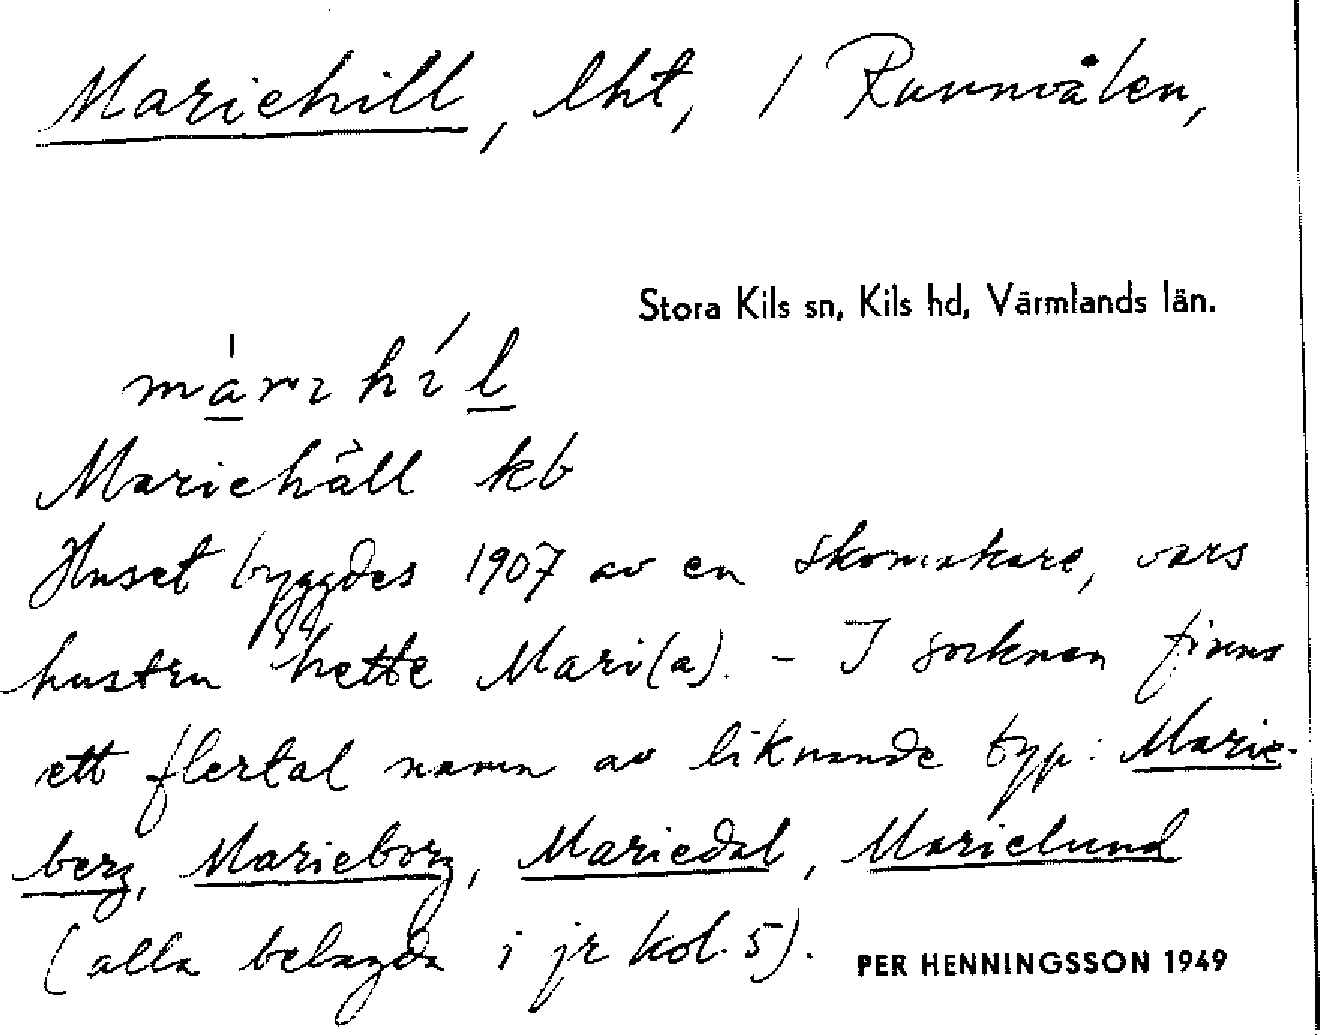 Mariehill, lht, / Runnvålen,
Stora Kils sn, Kils hd, Värmlands län.
Mariehäll kb
Huset byggdes 1907 av en skomakare, vars
hustru hette Mari(a). - I socknen finns
ett flertal namn av liknande typ: Marie-
berg, Marieborg, Mariedal, Marielund
(alla belagda i jr kol. 5).
PER HENNINGSSON 1949